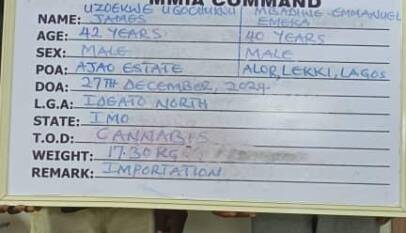 MMIA COMMAND
UZOEKWE UGOCHUKWU MBADIWE EMMANUEL
NAME: JAMES EMEKA
AGE: 42 YEARS 40 YEARS
SEX: MALE MALE
POA: AJAO ESTATE ALOR, LEKKI, LAGOS
DOA: 27TH DECEMBER, 2024.
L.G.A: IDEATO NORTH
STATE: IMO
T.O.D: CANNABIS
WEIGHT: 17.30KG
REMARK: IMPORTATION